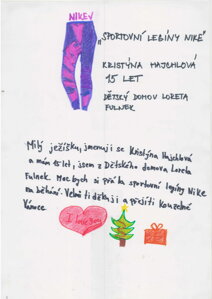 NIKEV
„SPORTOVNÍ LEGÍNY NIKE"
KRISTÝNA HAJCHLOVÁ
15 LET
DĚTSKÝ DOMOV LORETA
FULNEK
Milý ježíšku, jmenuji se Kristýna Hajchlová
a mám 15 let, jsem z Dětského domova Loreta
Fulnek. Moc bych si přála sportovní legíny Nike
na běhání. Velmi ti děkuji a přeji ti kouzelné
Vánoce
I love you